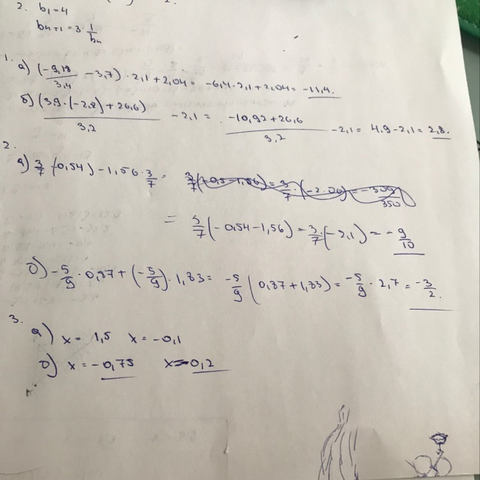 2. b₁=4
bn+1=3·1/bn
1.
а) (-9,18/3,4 -3,7)·2,1+2,04=-6,4·2,1+2,04=-11,4.
б) (3,9·(-2,8)+26,6)/3,2 -2,1= -10,92+26,6/3,2 -2,1=4,9-2,1=2,8.
2.
а) 3/7·(0,54)-1,56·3/7=
= 3/7(-0,54-1,56)=3/7·(-2,1)=-9/10
б) -5/9·0,97+(-5/9)·1,33= -5/9(0,37+1,33)=-5/9·2,7=-3/2.
3.
а) x=1,5 x=-0,1
б) x=-0,75 x=0,2